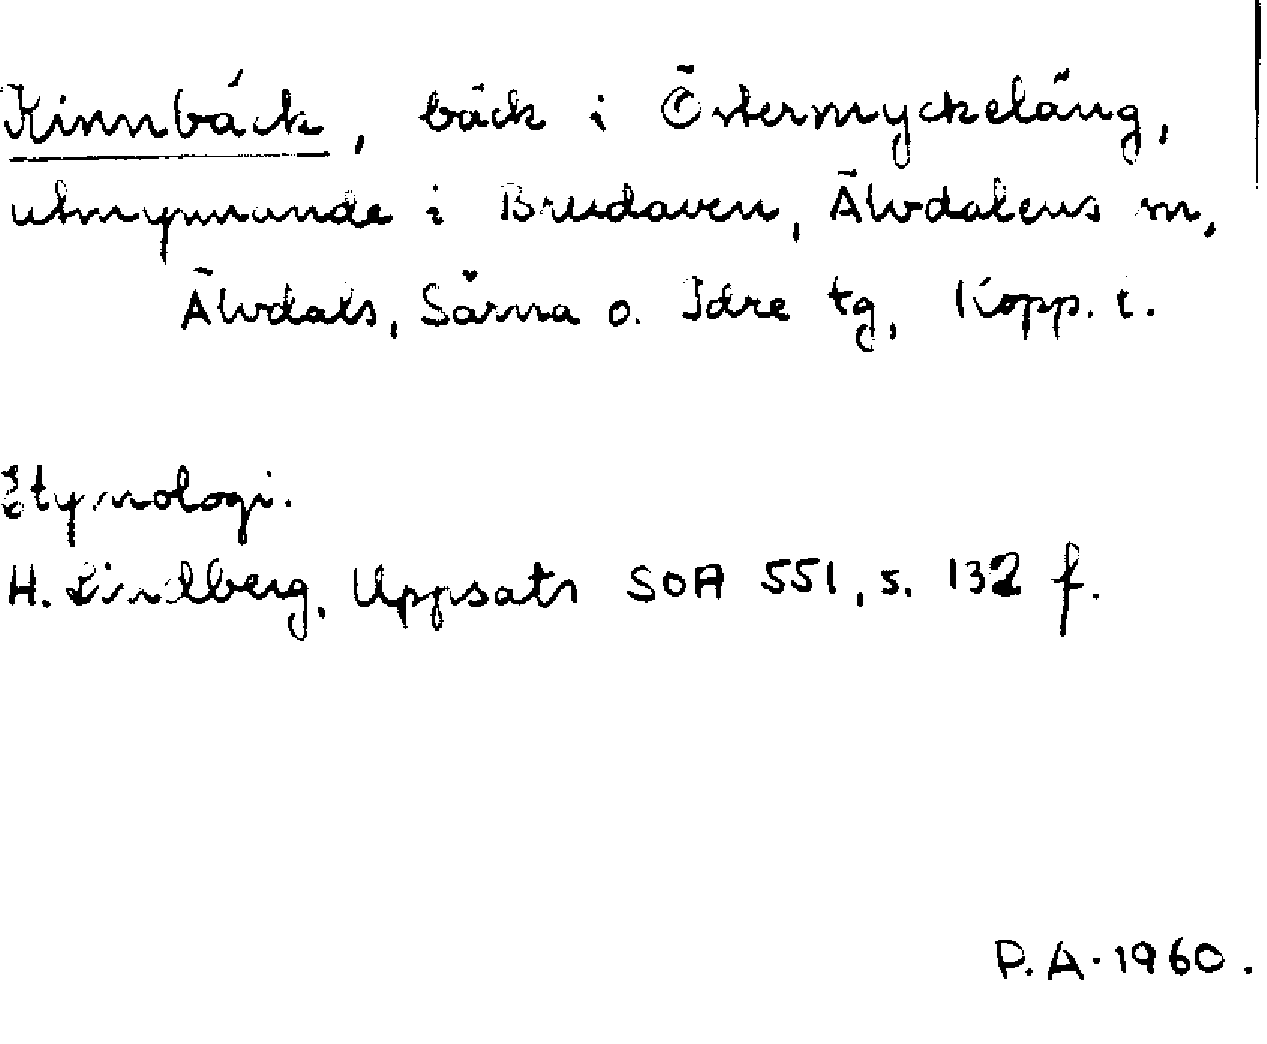 Kinnbäck, bäck i Östermyckeläng,
utmynnande i Brudaven, Älvdalens m,
Älvdals, Särna o. Idre tg, Kopp. l.
Etymologi.
H. Lindberg, Uppsats SOA 551, s. 132 f.
P.A. 1960.